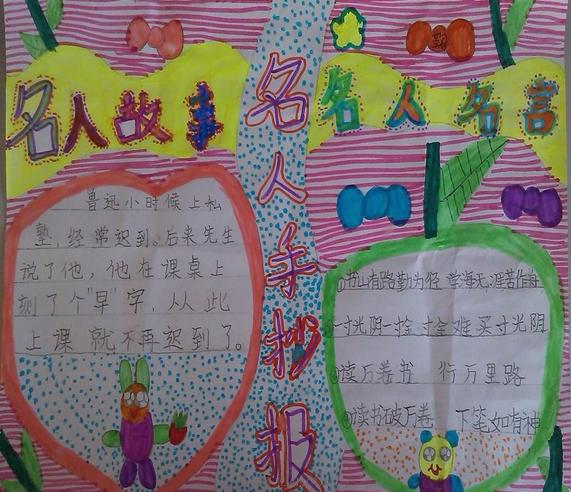 名人故事
鲁迅小时候上私
塾,经常迟到。后来先生
说了他,他在课桌上
刻了个"早"字,从此
上课就不再迟到了。
名人手抄报
名人名言
①书山有路勤为径 学海无涯苦作舟
一寸光阴一寸金 寸金难买寸光阴
③读万卷书 行万里路
④读书破万卷 下笔如有神